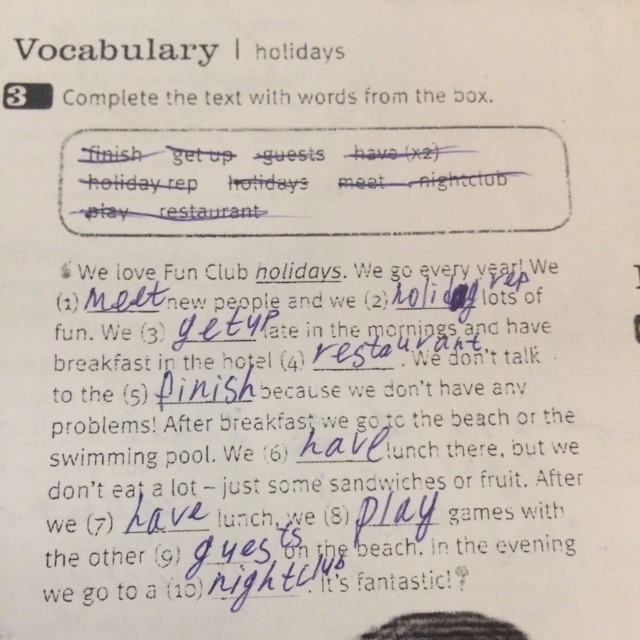 Vocabulary | holidays
3 Complete the text with words from the box.
finish get up guests have (x2)
holiday rep holidays meet nightclub
play restaurant
We love Fun Club holidays. We go every year! We
(1) meet new people and we (2) holiday rep lots of
fun. We (3) get up late in the mornings and have
breakfast in the hotel (4) restaurant. We don't talk
to the (5) finish because we don't have any
problems! After breakfast we go to the beach or the
swimming pool. We (6) have lunch there, but we
don't eat a lot – just some sandwiches or fruit. After
we (7) have lunch, we (8) play games with
the other (9) guests on the beach. In the evening
we go to a (10) nightclub. It's fantastic!